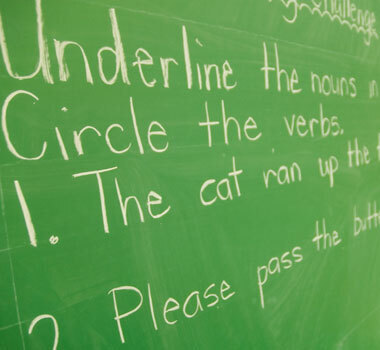 Challenge
Underline the nouns in
Circle the verbs.
1. The cat ran up the
2. Please pass the